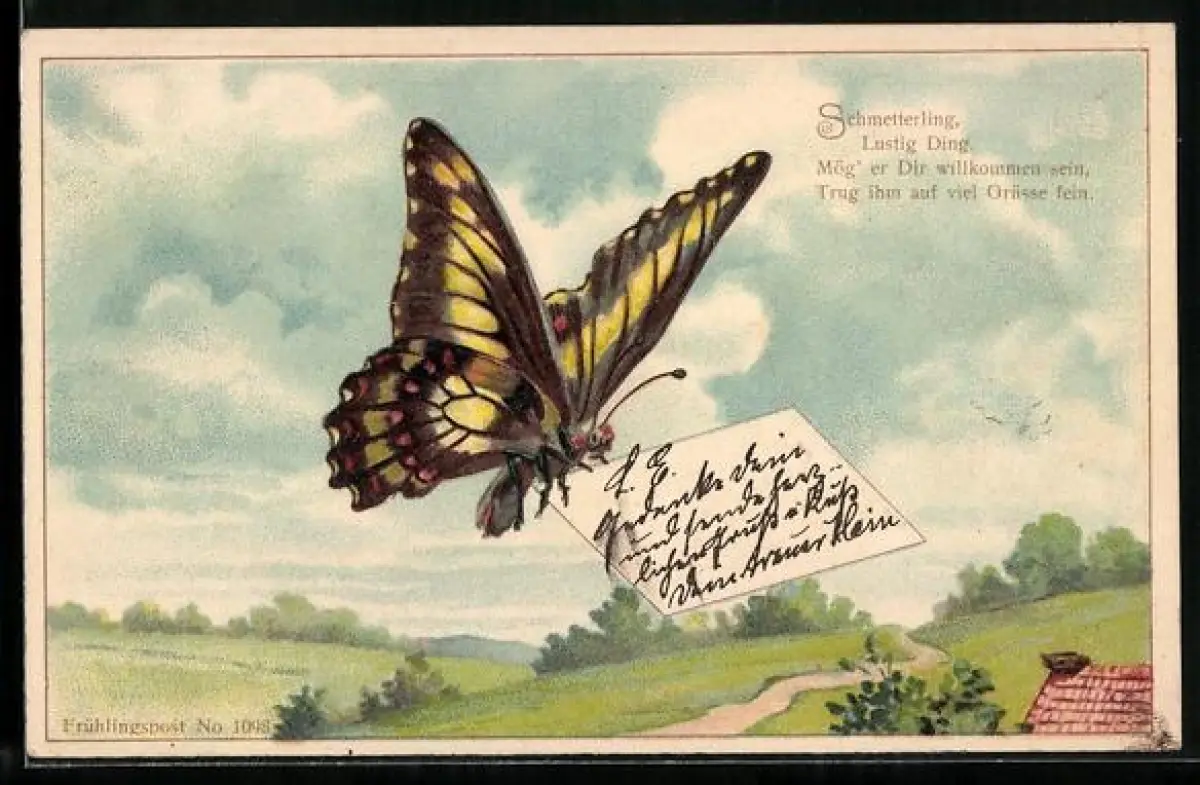 Schmetterling,
Lustig Ding.
Mög' er Dir willkommen sein,
Trug ihm auf viel Grüsse fein.
Gedenke dein
und sende herz-
lichen Gruß u Kuß
Dein treuer Klein
Frühlingspost No 1098